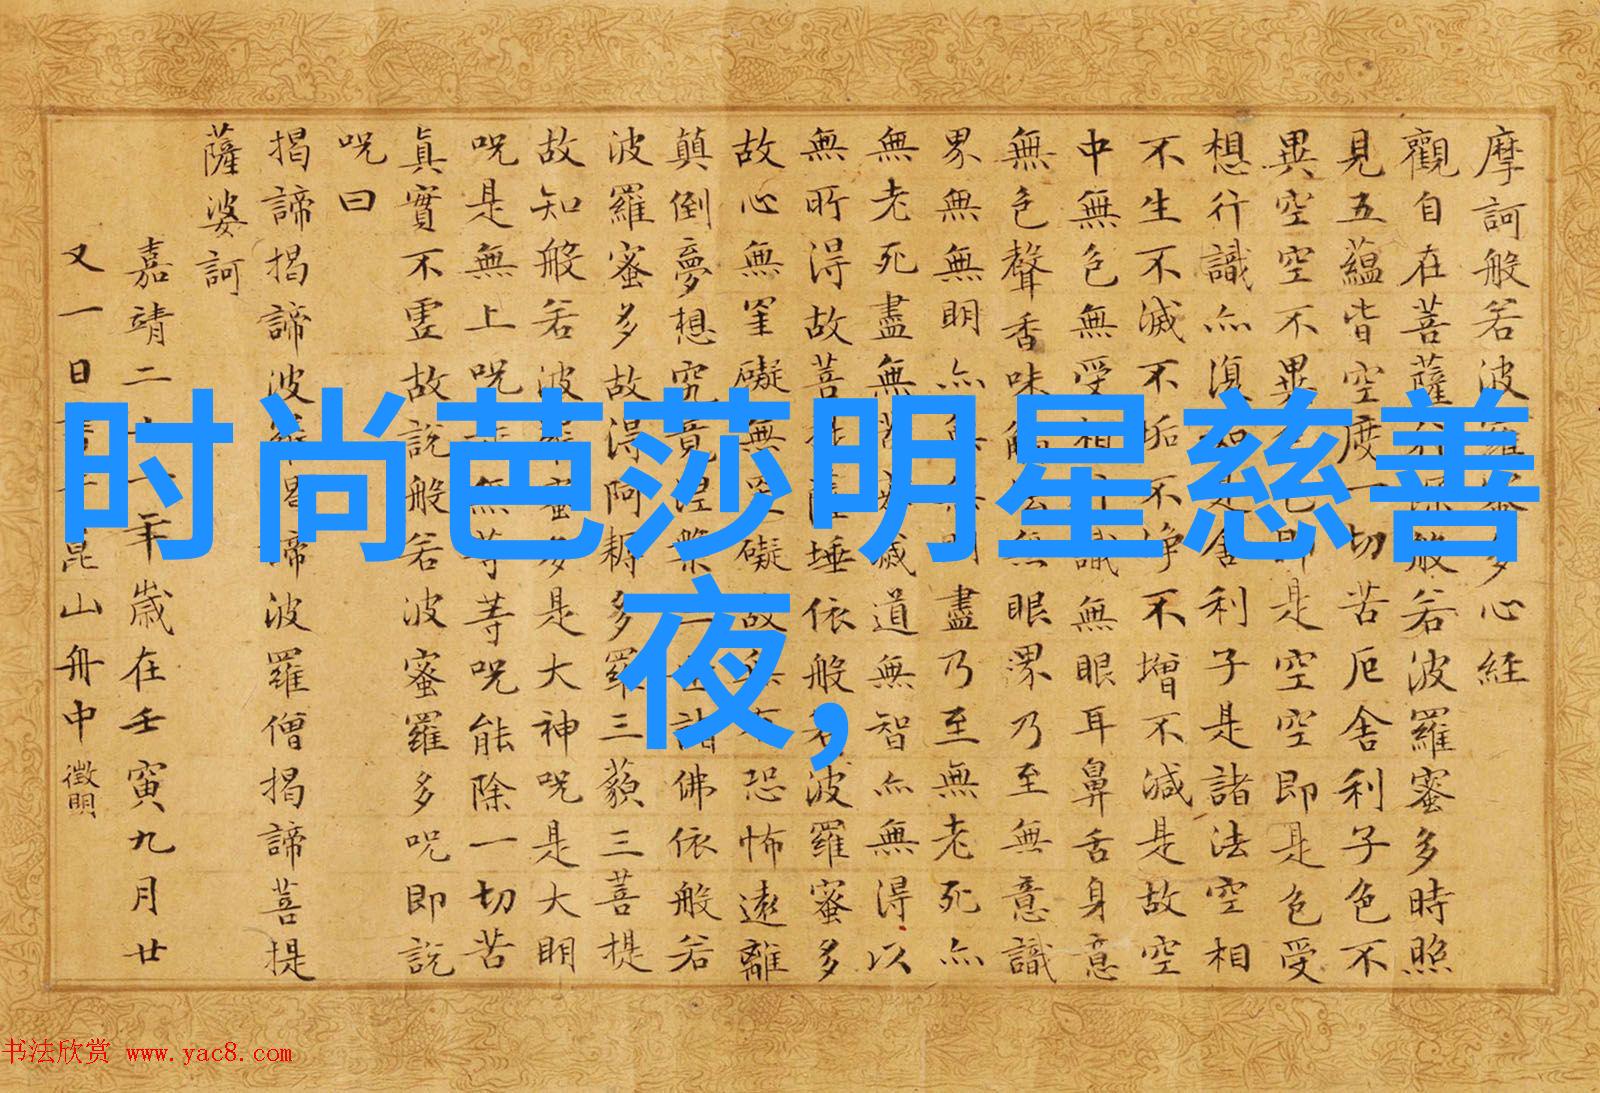 时尚芭莎明星慈善
夜,
摩訶般若波羅蜜多心經
觀自在菩薩行深般若波羅蜜多時照
見五蘊皆空度一切苦厄舍利子色不
異空空不異色色即是空空即是色受
想行識亦復如是舍利子是諸法空相
不生不滅不垢不淨不增不減是故空
中無色無受想行識無眼耳鼻舌身意
無色聲香味觸法無眼界乃至無意識
界無無明亦無無明盡乃至無老死亦
無老死盡無苦集滅道無智亦無得以
無所得故菩提薩埵依般若波羅蜜多
故心無罣礙無罣礙故無有恐怖遠離
顛倒夢想究竟涅槃三世諸佛依般若
波羅蜜多故得阿耨多羅三藐三菩提
故知般若波羅蜜多是大神呪是大明
呪是無上呪是無等等呪能除一切苦
真實不虛故說般若波羅蜜多呪即說
呪曰
揭諦揭諦波羅揭諦波羅僧揭諦菩提
薩婆訶
嘉靖二十一年歲在壬寅九月廿
又一日書于昆山舟中 徵明
书法欣赏 www.yac8.com